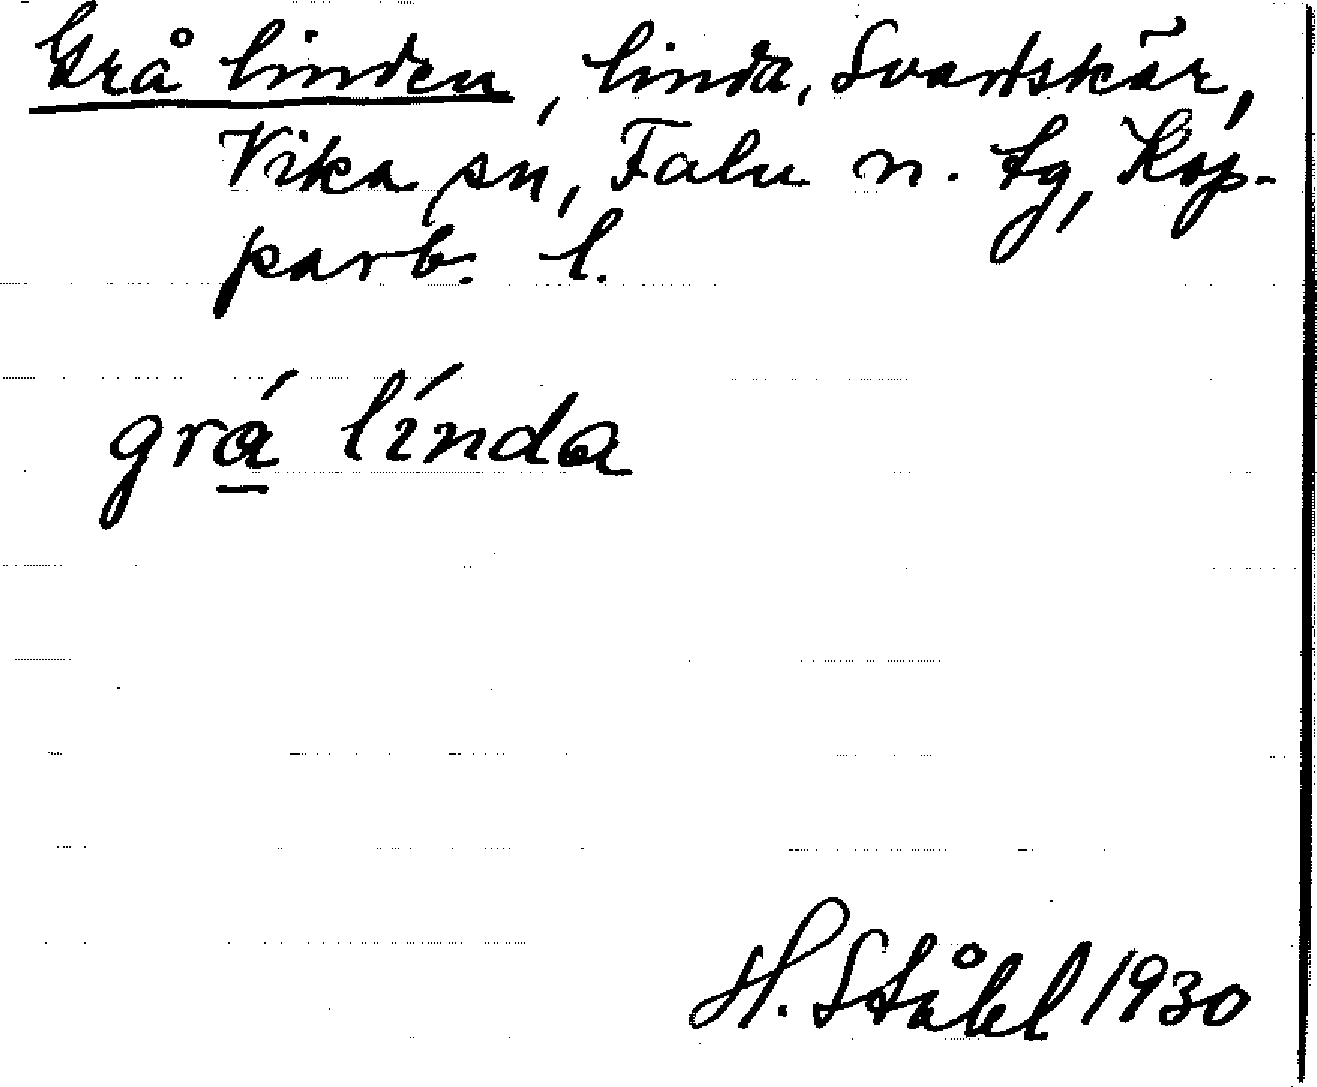 Grå linden, linda, Svartskär,
Vika sn, Falu n. tg, Kop-
parb. l.
grá línda
H. Ståhl 1930